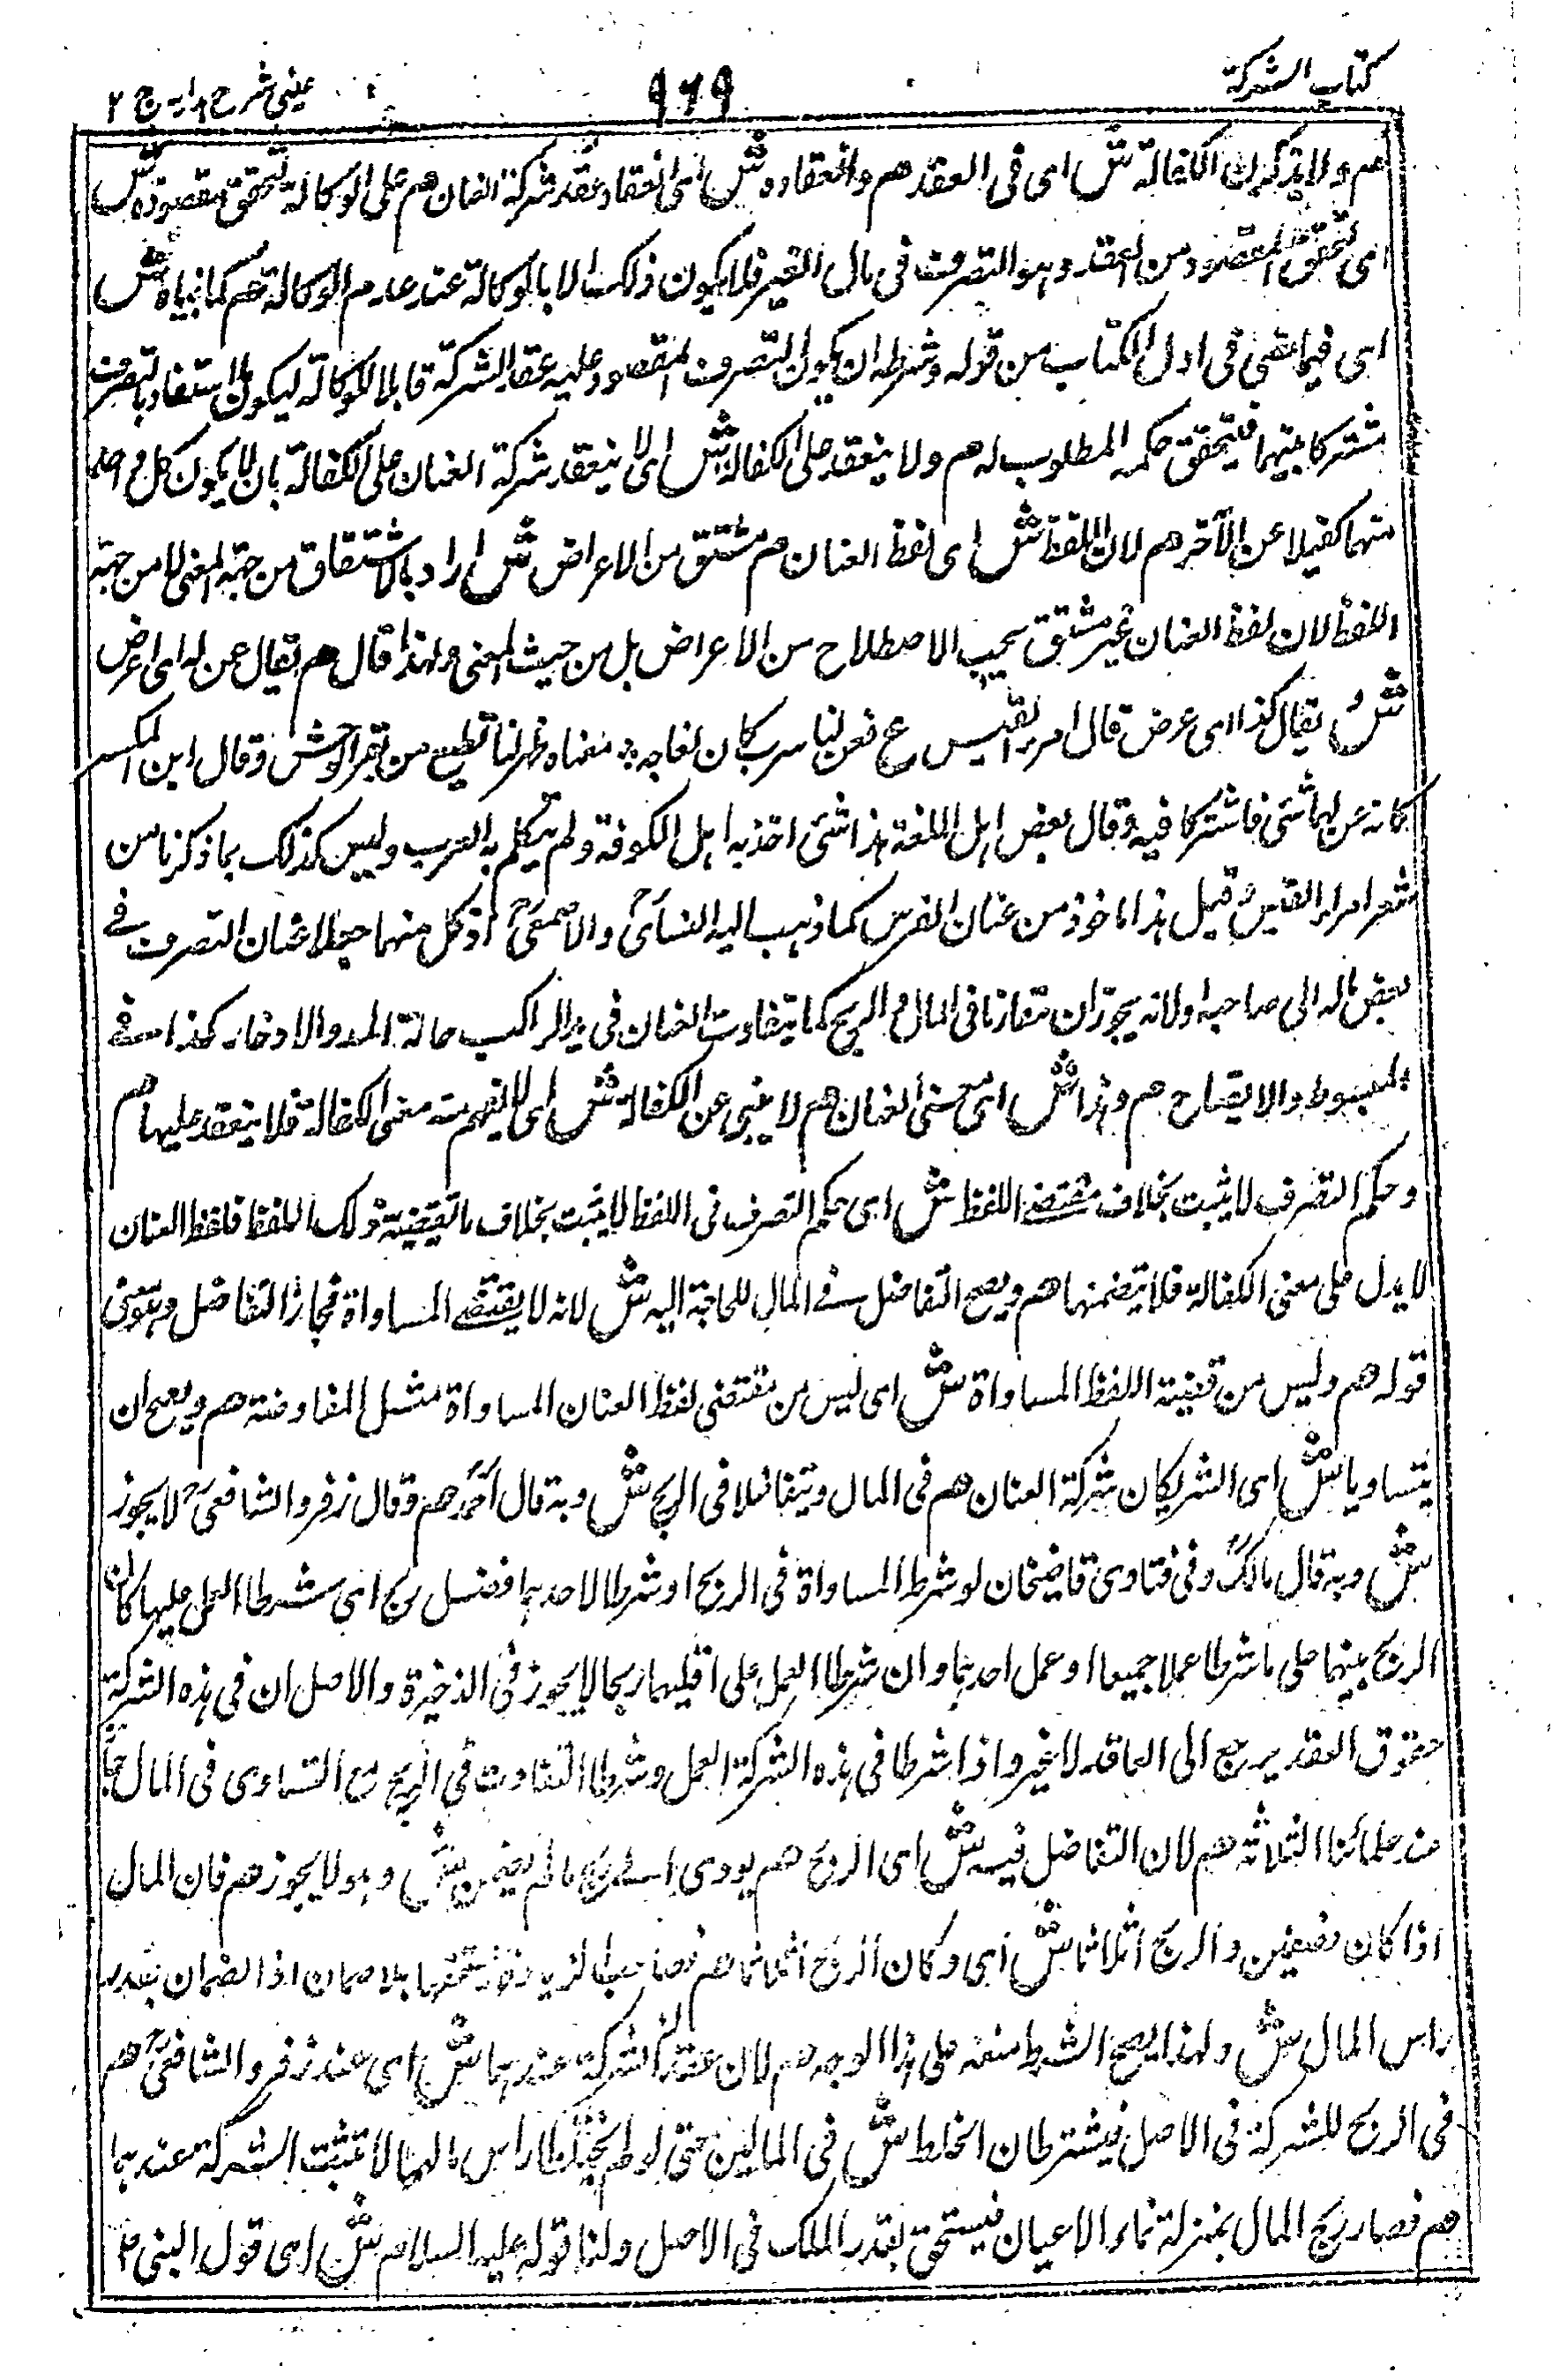 كتاب الشركة
٩٦٩
عينى شرح هدايه ج ٢
هم ولا يذكران الكفالة ش اى فى العقد هم وانعقاده ش اى انعقاد عقد شركة العنان هم على الوكالة لتحقق مقصوده ش
اى لتحقق المقصود من العقد وهو التصرف فى مال الغير فلا يكون ذلك الا بالوكالة عند عدم الوكالة هم كما بيناه ش
اى فيما مضى فى اول الكتاب من قوله وشرطه ان يكون التصرف المقصود عليه عقد الشركة قابلا للوكالة ليكون ما استفاد بالتصرف
مشتركا بينهما فيتحقق حكمه المطلوب له هم ولا ينعقد على الكفالة ش اى لا ينعقد شركة العنان على الكفالة بان لا يكون كل واحد
منهما كفيلا عن الآخر هم لان اللفظ ش اى لفظ العنان هم مشتق من الاعراض ش اراد بالاشتقاق من جهة المعنى لا من جهة
اللفظ لان لفظ العنان غير مشتق بحسب الاصطلاح من الاعراض بل من حيث المعنى ولهذا قال هم يقال عن له اى اعرض
ش و يقال كذا اى عرض قال امرء القيس ع فعن لنا سرب كان نعاجه ؛ معناه ظهر لنا قطيع من بقر الوحش وقال ابن السكيت
كانه عن لهما شئى فاشتركا فيه وقال بعض اهل اللغة هذا شئى اخذ به اهل الكوفة ولم يتكلم به العرب وليس كذلك بما ذكرنا من
شعر امرء القيس وقيل هذا ماخوذ من عنان الفرس كما ذهب اليه الكسائى والاصمعى اذ كل منهما جعل عنان التصرف فى
بعض ماله الى صاحبه او لانه يجوز ان يتفاوتا فى المال والربح كما يتفاوت العنان فى يد الراكب حالة المد والارخاء كذا فى
المبسوط والايضاح هم وهذا ش اى معنى العنان هم لا ينبى عن الكفالة ش اى لا يفهم منه معنى الكفالة فلا ينعقد عليها هم
وحكم التصرف لا يثبت بخلاف مقتضى اللفظ ش اى حكم التصرف فى اللفظ لا يثبت بخلاف ما تقتضيه ذلك اللفظ فلفظ العنان
لا يدل على معنى الكفالة فلا يتضمنها هم ويصح التفاضل فى المال للحاجة اليه ش لانه لا يقتضى المساواة فجاز التفاضل وهو معنى
قوله هم وليس من قضية اللفظ المساواة ش اى ليس من مقتضى لفظ العنان المساواة مثل المفاوضة هم ويصح ان
يتساويا ش اى الشريكان شركة العنان هم فى المال ويتفاضلا فى الربح ش وبه قال احمد هم وقال زفر والشافعى لا يجوز
ش وبه قال مالك وفى فتاوى قاضيخان لو شرط المساواة فى الربح او شرطا لاحدهما فضل ربح اى شرطا العمل عليهما كان
الربح بينهما على ما شرطا عملا جميعا او عمل احدهما وان شرطا العمل على اقلهما ربحا لا يجوز فى الذخيرة والاصل ان فى هذه الشركة
حقوق العقد يرجع الى العاقد لا غير واذا شرطا فى هذه الشركة العمل وشرطا التفاوت فى الربح مع التساوى فى المال جاز
عند علمائنا الثلاثة هم لان التفاضل فيه ش اى الربح هم يودى الى ربح ما لم يضمن ش وهو لا يجوز هم فان المال
اذا كان نصفين والربح اثلاثا ش اى وكان الربح اثلاثا هم فصاحب الزيادة يستحقها بلا ضمان اذ الضمان بقدر
راس المال ش ولهذا يصح الشرط منه على هذا الوجه هم لان عقد الشركة عندهما ش اى عند زفر والشافعى هم
فى الربح للشركة فى الاصل فيشترطان الخلط ش فى المالين حتى لو لم يختلطا راس مالهما لا تثبت الشركة عندهما
هم فصار ربح المال بمنزلة نماء الاعيان فيستحق بقدر الملك فى الاصل ولنا قوله عليه السلام ش اى قول النبى ص